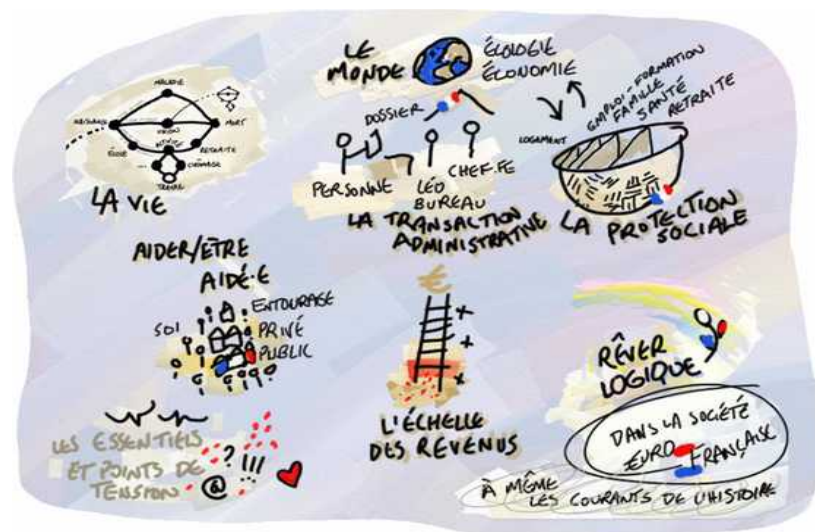 MALADIE
NAISSANCE
UNION
MORT
ÉCOLE
ACTIVITÉ
RETRAITE
...
CHÔMAGE
TRAVAIL
LA VIE
LE
MONDE
ÉCOLOGIE
ÉCONOMIE
DOSSIER
PERSONNE
LÉO
BUREAU
CHEF·FE
LA TRANSACTION
ADMINISTRATIVE
LOGEMENT
EMPLOI-FORMATION
FAMILLE
SANTÉ
RETRAITE
LA PROTECTION
SOCIALE
AIDER/ÊTRE
AIDÉ·E
SOI
ENTOURAGE
PRIVÉ
PUBLIC
€
+
+
+
L'ÉCHELLE
DES REVENUS
RÊVER
LOGIQUE
LES ESSENTIELS
ET POINTS DE
TENSION
? !!!
@
DANS LA SOCIÉTÉ
EURO FRANÇAISE
À MÊME
LES COURANTS DE L'HISTOIRE